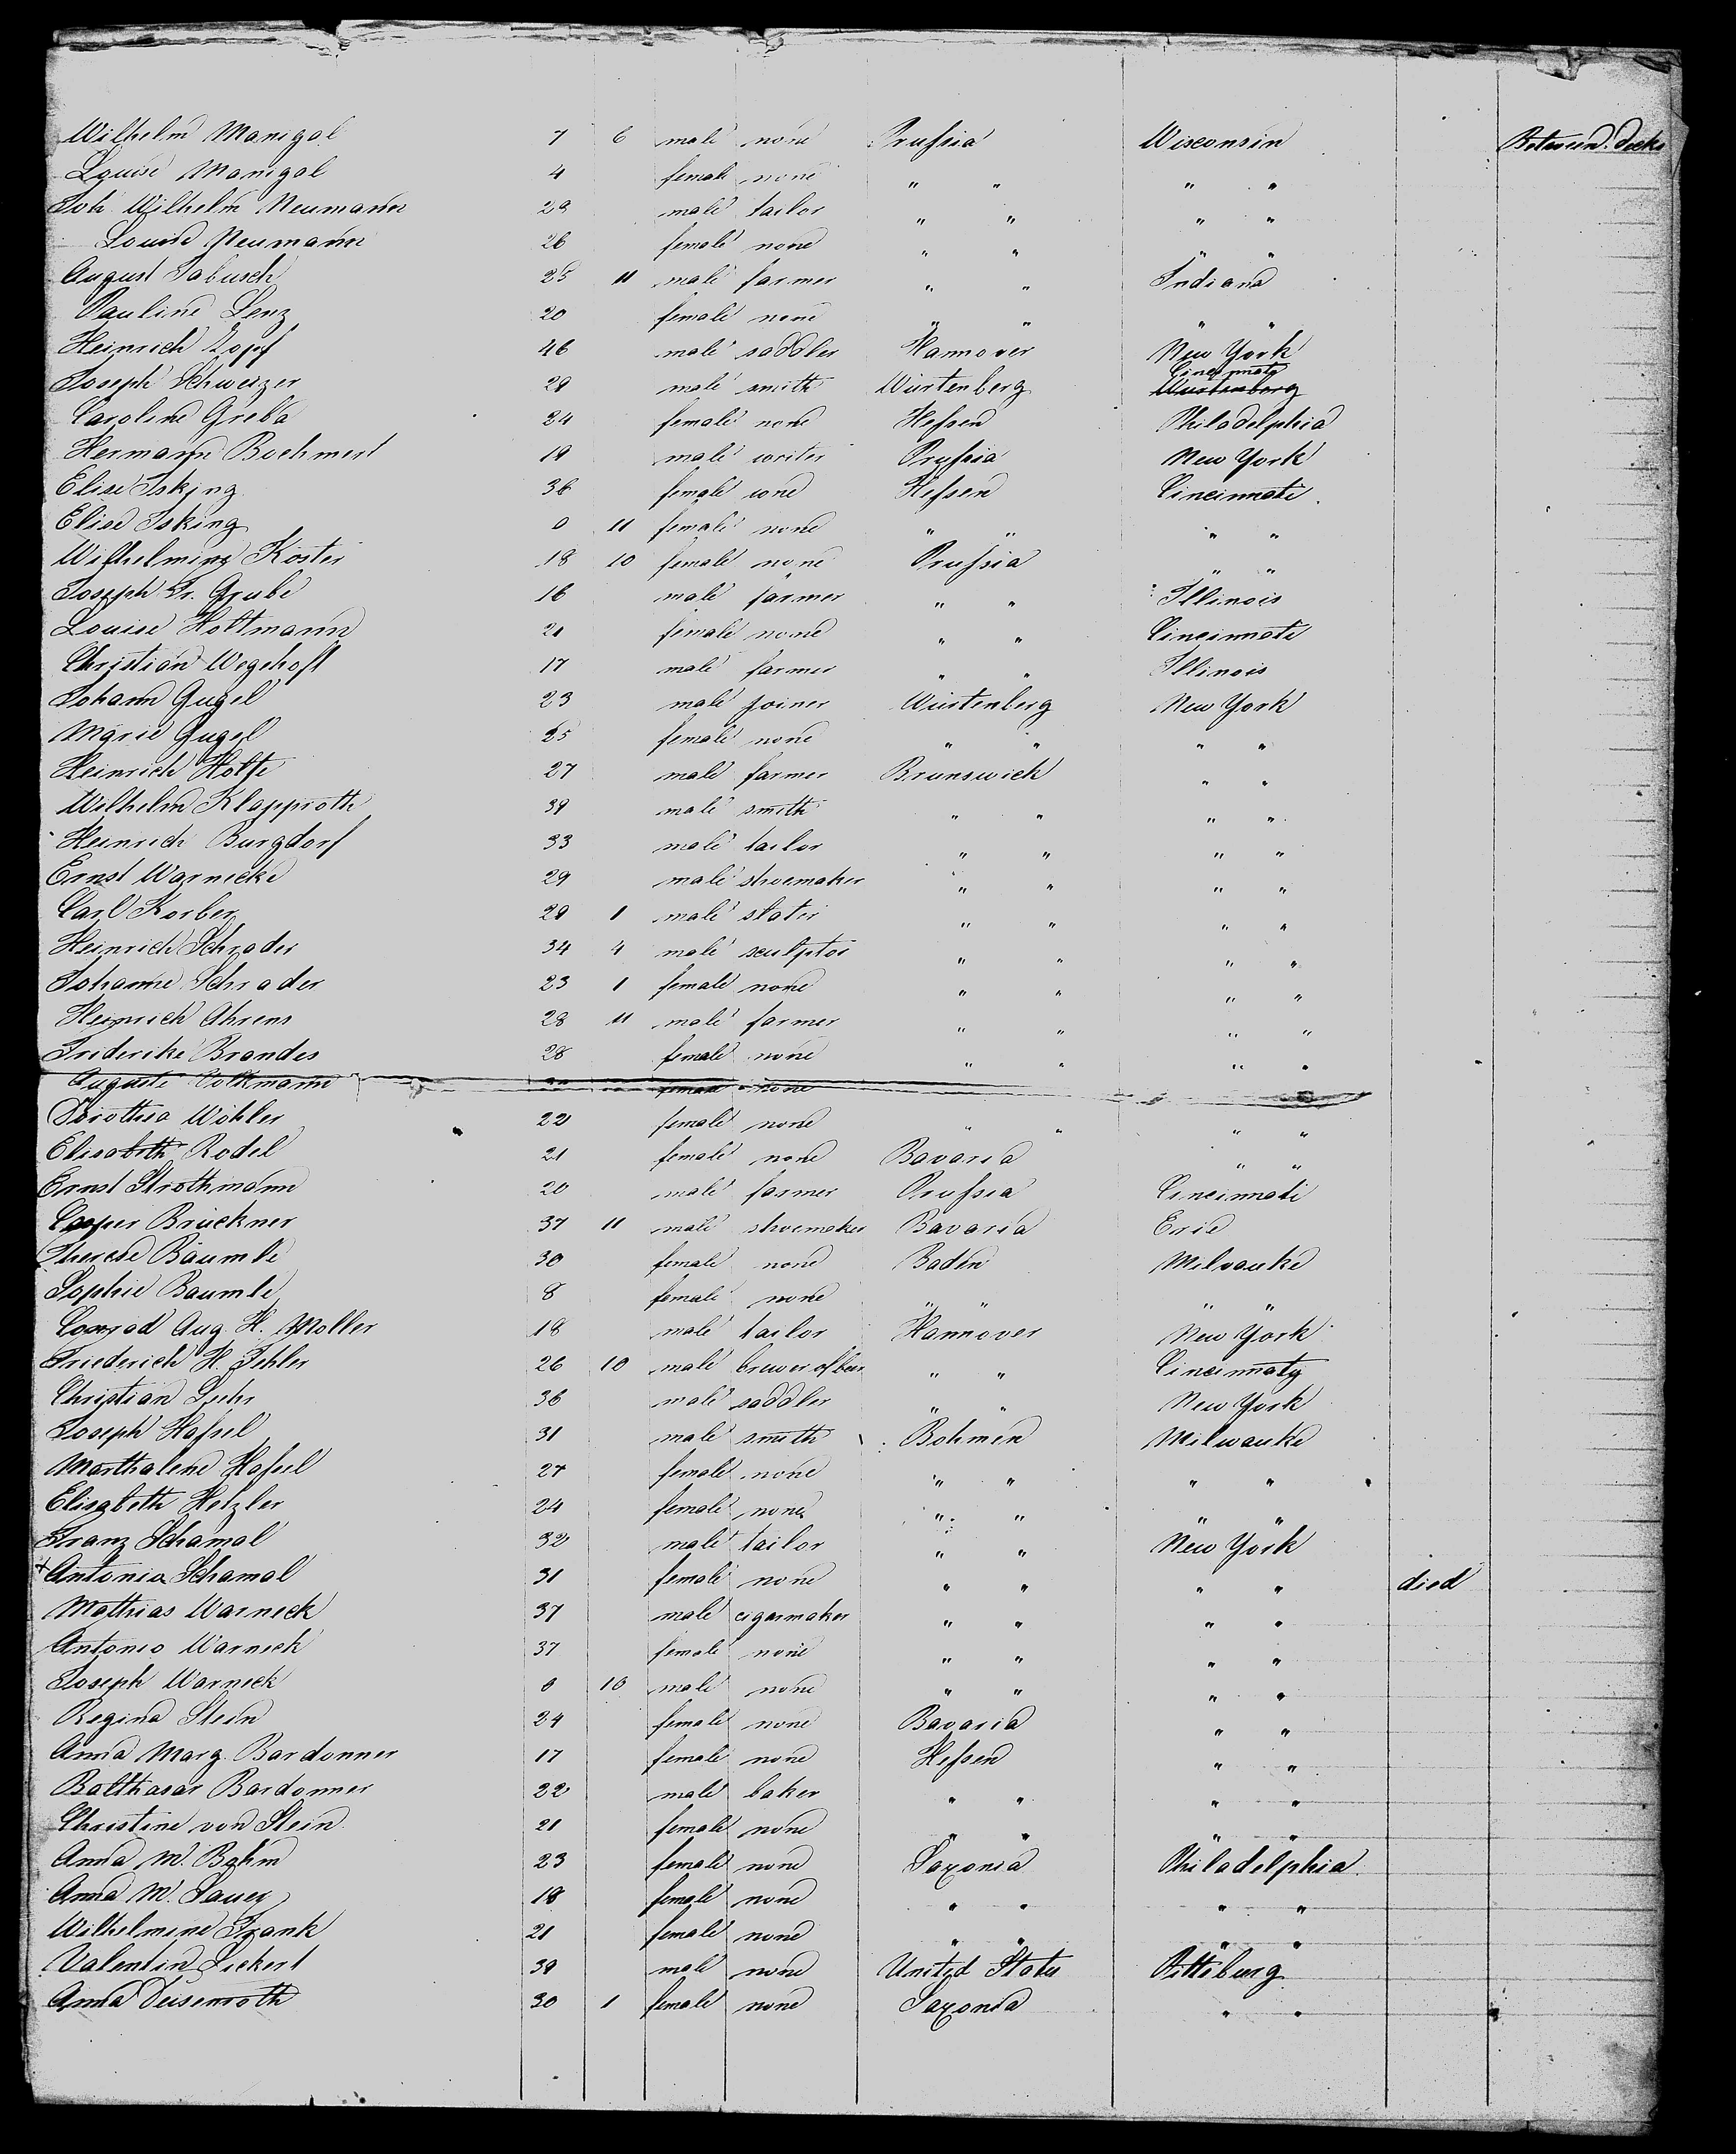 Wilhelm Manigal 7 6 male none Prussia Wisconsin Between decks
Louise Manigal 4 female none " " " "
Joh. Wilhelm Neumann 29 male tailor " " " "
Louise Neumann 26 female none " " " "
August Tabusch 25 11 male farmer " " Indiana
Pauline Lenz 20 female none " " " "
Heinrich Zopf 46 male saddler Hannover New York
Joseph Schweizer 29 male smith Würtenberg Cincinnaty Würtenberg
Caroline Greba 24 female none Hessen Philadelphia
Hermann Boehmert 19 male writer Prussia New York
Elise Isking 36 female none Hessen Cincinnati
Elise Isking 0 11 female none " " " "
Wilhelmine Koster 18 10 female none Prussia " "
Joseph Fr. Grube 16 male farmer " " Illinois
Louise Holtmann 21 female none " " Cincinnati
Christian Wegehoft 17 male farmer " " Illinois
Johann Gugel 23 male joiner Würtenberg New York
Marie Gugel 25 female none " " " "
Heinrich Holte 27 male farmer Brunswick " "
Wilhelm Klapproth 39 male smith " " " "
Heinrich Burgdorf 33 male tailor " " " "
Ernst Warnecke 29 male shoemaker " " " "
Carl Korber 29 1 male slater " " " "
Heinrich Schrader 34 4 male sculptor " " " "
Johanne Schrader 23 1 female none " " " "
Heinrich Ahrens 28 11 male farmer " " " "
Friderike Brandes 28 female none " " " "
Auguste Volkmann female none
Dorothea Wöhler 22 female none " " " "
Elisabeth Rodel 21 female none Bavaria " "
Ernst Strothmann 20 male farmer Prussia Cincinnati
Casper Brückner 37 11 male shoemaker Bavaria Erie
Therese Bäumle 30 female none Baden Milvauke
Sophie Baumle 8 female none " " " "
Conrad Aug. H. Moller 18 male tailor Hannover New York
Friederich H. Fehler 26 10 male brewer of beer " " Cincinnaty
Christian Luhr 36 male saddler " " New York
Joseph Hassel 31 male smith Bohmen Milwauke
Marthalene Hassel 27 female none " " " "
Elisabeth Helzler 24 female none " " " "
Franz Schamal 32 male tailor " " New York
+ Antonia Schamal 31 female none " " " " died
Mathias Warneck 37 male cigarmaker " " " "
Antonio Warneck 37 female none " " " "
Joseph Warneck 0 10 male none " " " "
Regina Stein 24 female none Bavaria " "
Anna Marg. Bardonner 17 female none Hessen " "
Balthasar Bardonner 22 male baker " " " "
Christine von Stein 21 female none " " " "
Anna M. Bohm 23 female none Saxonia Philadelphia
Anna M. Sauer 18 female none " " " "
Wilhelmine Frank 21 female none " " " "
Valentin Lickert 39 male none United States Pittsburg
Anna Deisenroth 30 1 female none Saxonia " "